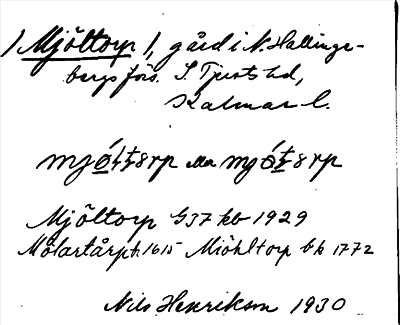 / Mjöltorp /, gård i N. Hallinge-
bergs förs. S. Tjusts hd,
Kalmar l.
Mjöltorp G37 kb 1929
Mölartårpt 1615 Miöhltorp bk 1772
Nils Henrikson 1930